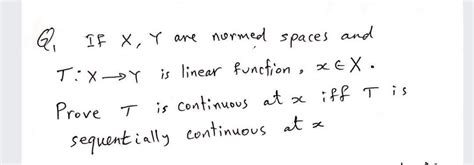 Q1 If X, Y are normed spaces and
T: X → Y is linear function, x ∈ X.
Prove T is continuous at x iff T is
sequentially continuous at x